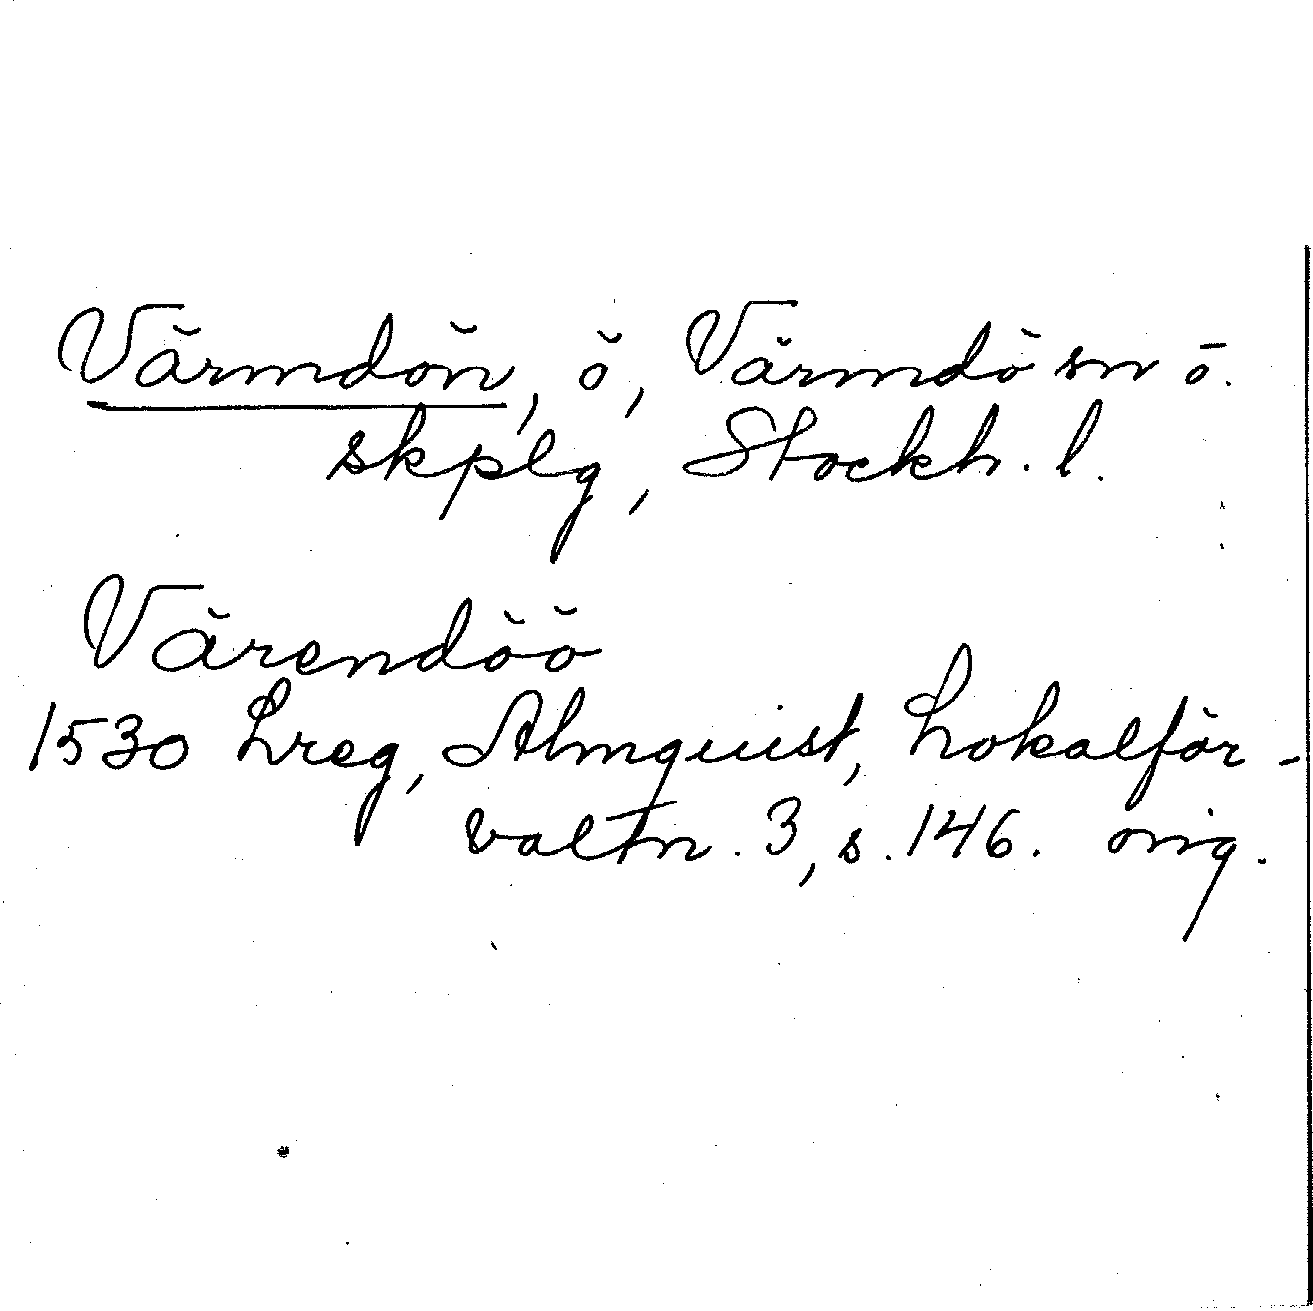 Värmdön, ö, Värmdö sn ö.
skplg, Stockh. l.
Värendöö
1530 Lreg, Almquist, Lokalför-
valtn. 3, s. 146. orig.